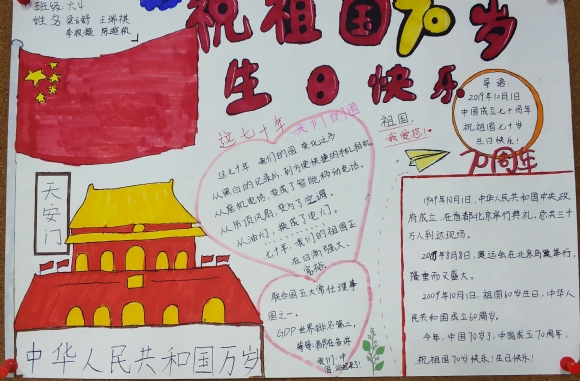 班级:六4
姓名
祝祖国70岁
生日快乐
导语:
2019年10月1日
中国成立七十周年
祝祖国七十岁
生日快乐!
70周年
祖国,
我爱您!
这七十年
我们的国
这七十年,我们的国变化过多
从黑白的记录后,到方便快捷的手机相机。
从座机电话,变成了智能移动电话。
从吊顶风扇,变为了空调。
从油灯,换成了电灯。
七十年,我们的祖国正
在日渐强大、
富裕。
联合国五大常任理事
国之一。
GDP世界排名第二,
等等都在告诉
我们:中
国
天安门
中华人民共和国万岁
1949年10月1日,中华人民共和国中央政
府成立,在首都北京举行典礼,总共三十
万人到达现场。
2008年8月8日,奥运会在北京鸟巢举行,
隆重而又盛大。
2009年10月1日,祖国60岁生日,中华人
民共和国成立60周年。
今年,中国70岁了,中国成立70周年,
祝祖国70岁快乐!生日快乐!